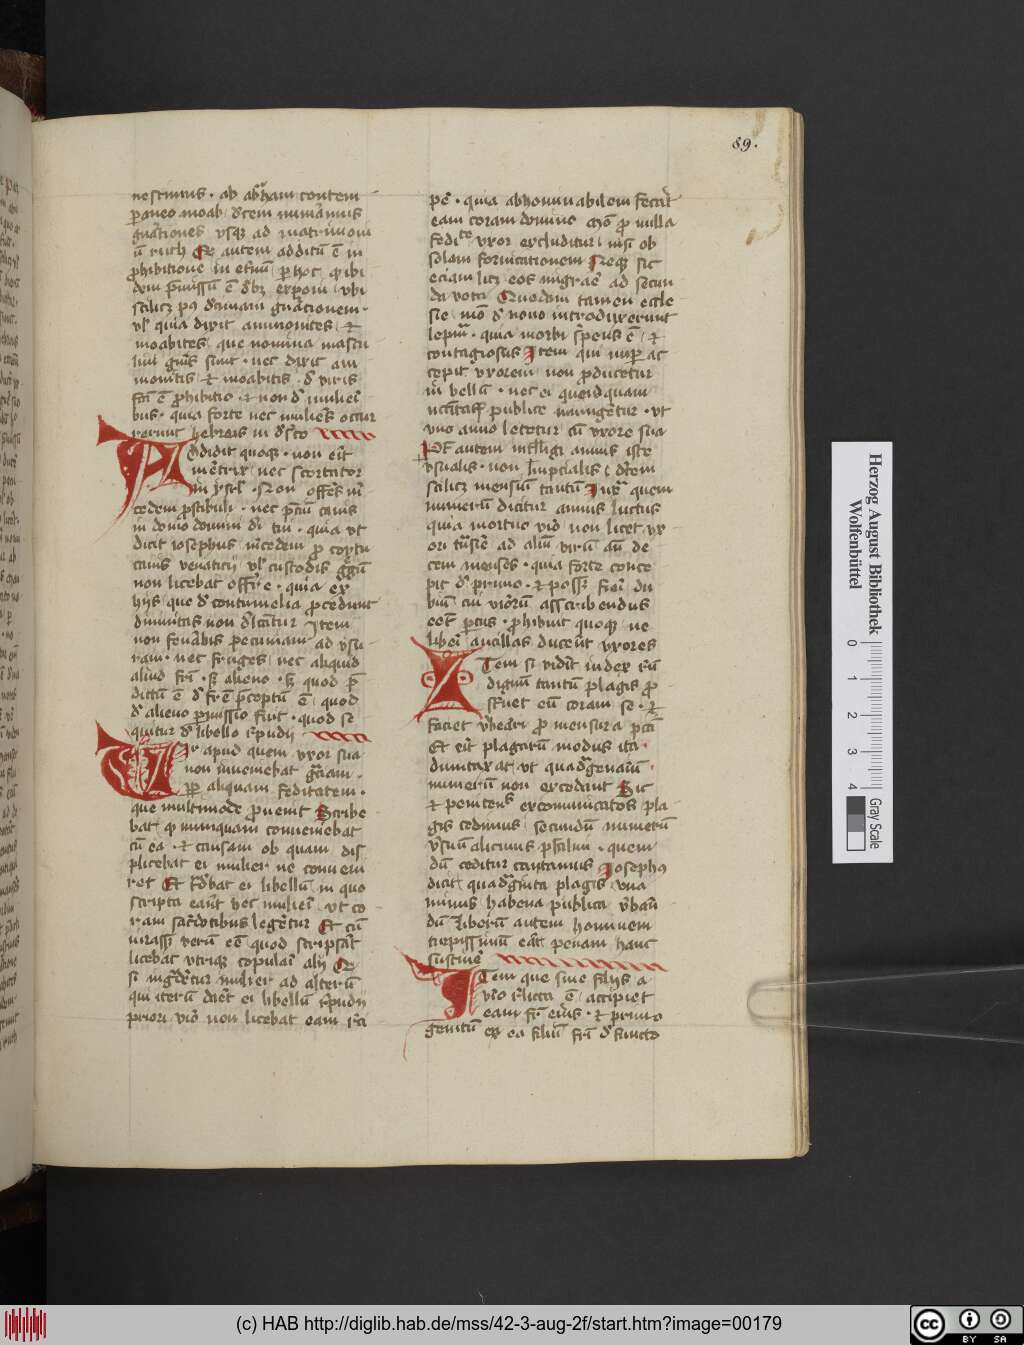 89.
nescimus · ab abraham contem
paneo moab decem numeramus
generationes usque ad matrimoni
um ruth Et autem additum est in
prohibitione in eternum per hoc quod ibi
dem permissum est debet exponi ubi
scilicet post decimam generationem ·
vel quia dixit ammonites · Et
moabites que nomina mascu
lini generis sunt · nec dixit am
monitis et moabitis · de viris
facta est prohibitio · et non de mulieri
bus · quia forte nec mulieres occur
rerunt hebreis in deserto
Addidit quoque · non erit
meretrix nec scortator
in israel · Non offeres mer
cedem prostibuli · nec precium canis
in domo domini dei tui · quia ut
dicit iosephus mercedem pro coytu
canis venatici vel custodis gregum
non licebat offerre · quia ex
hiis que de contumelia procedunt
divinitas non delectatur Item
non fenerabis pecuniam ad usu
ram · nec fruges nec aliquid
aliud fratri · sed alieno · sed quod
dictum est de fratre preceptum est quod
de alieno permissio fuit · quod se
quitur de libello repudii
Vir apud quem uxor sua
non inveniebat gratiam ·
propter aliquam feditatem ·
que multimode provenit Scribe
bat quod nunquam conveniebat
cum ea · et causam ob quam dis
plicebat ei mulier ne conveni
ret Et dabat ei libellum in quo
scripta erant hec mulieri ut co
ram sacerdotibus legeretur Et cum
iurassent verum esse quod scripserat
licebat utrique copulari alii Et
si ingrederetur mulier ad alterum
qui iterum daret ei libellum repudii
priori viro non licebat eam reci
pere · quia abhominabilem fecerat
eam coram domino Modo pro nulla
feditate uxor excluditur nisi ob
solam fornicationem Neque sic
eciam licet eos migrare ad secun
da vota Quedam tamen eccle
sie modo de novo introduxerunt
lepram · quia morbi species est · et
contagiosus Item qui nuper ac
cepit uxorem non producetur
in bellum · nec ei quidquam
necessitatis publice iniungetur · ut
uno anno letetur cum uxore sua
Potest autem intelligi annus iste
usualis · non imperialis decem
scilicet mensium tantum Iuxta quem
numerum dicitur annus luctus
quia mortuo viro non licet ux
ori transire ad alium virum ante de
cem menses · quia forte conce
pit de primo · et posset fieri du
bium cui virorum asscribendus
esset partus · prohibuit quoque ne
liberi ancillas ducerent uxores
Item si viderit iudex reum
dignum tantum plagis pro
sternet eum coram se · et
faciet verberari pro mensura peccati
Et erit plagarum modus ita ·
dumtaxat ut quadragenarium ·
numerum non excedant Sic
et penitens excommunicatos pla
gis cedimus secundum numerum
versuum alicuius psalmi · quem
dum ceditur cantamus Iosephus
dicit quadraginta plagis una
minus habena publica verberan
dum Liberum autem hominem
turpissimum erat penam hanc
sustinere
Item que sine filiis a
viro relicta est · accipiet
eam frater eius · et primo
genitum ex ea filium fratri defuncto
Herzog August Bibliothek
Wolfenbüttel
0
1
2
3
4
Gray Scale
(c) HAB http://diglib.hab.de/mss/42-3-aug-2f/start.htm?image=00179
cc BY SA